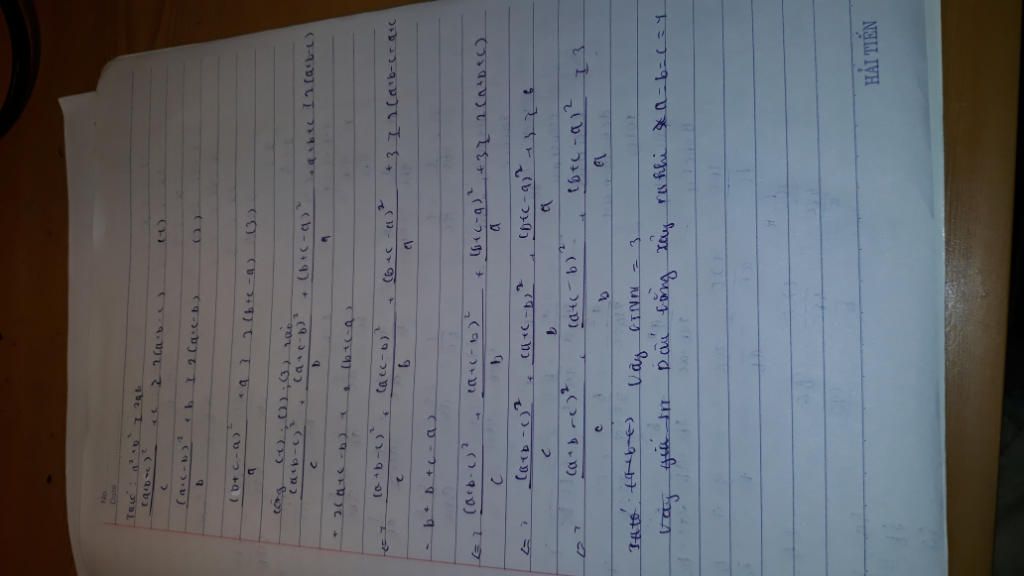 No.
Date
Ta có: a² + b² ≥ 2ab
(a+b-c)²/c + c ≥ 2(a+b-c) (1)
(a+c-b)²/b + b ≥ 2(a+c-b) (2)
(b+c-a)²/a + a ≥ 2(b+c-a) (3)
Cộng (1), (2), (3) vào
(a+b-c)²/c + (a+c-b)²/b + (b+c-a)²/a + a+b+c ≥ 2(a+b-c)
+ 2(a+c-b) + (b+c-a)
<=> (a+b-c)²/c + (a+c-b)²/b + (b+c-a)²/a + 3 ≥ 2(a+b-c+a+c
- b + b+c-a)
<=> (a+b-c)²/c + (a+c-b)²/b + (b+c-a)²/a + 3 ≥ 2(a+b+c)
<=> (a+b-c)²/c + (a+c-b)²/b + (b+c-a)²/a + 3 ≥ 6
<=> (a+b-c)²/c + (a+c-b)²/b + (b+c-a)²/a ≥ 3
Ta có: (a+b+c) Vậy GTNN = 3
Vậy giá trị Dấu bằng xảy ra khi a=b=c=1
HẢI TIẾN